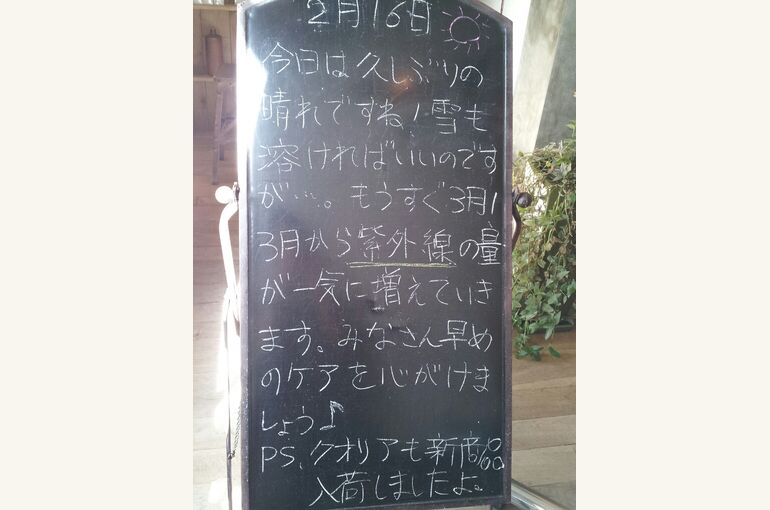 2月16日
今日は久しぶりの
晴れですね!雪も
溶ければいいのです
が…。もうすぐ3月!
3月から紫外線の量
が一気に増えていき
ます。みなさん早め
のケアを心がけま
しょう♪
PS、クオリアも新商品
入荷しましたよ。